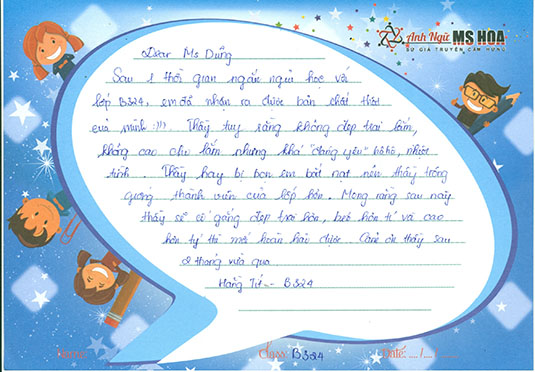 Anh Ngữ MS HOA
SỨ GIẢ TRUYỀN CẢM HỨNG
Dear Ms Dũng
Sau 1 thời gian ngắn ngủi học với
lớp B324, em đã nhận ra được bản chất thật
của mình :))). Thầy tuy rằng không đẹp trai lắm,
không cao cho lắm nhưng khá "đáng yêu" hô hô, nhiệt
tình. Thầy hay bị bọn em bắt nạt nên thầy trông
gương thành viên của lớp hơn. Mong rằng sau này
thầy sẽ cố gắng đẹp trai hơn, béo hơn tí và cao
hơn tý thì mới hoàn hảo được. Cảm ơn thầy sau
2 tháng vừa qua
Hằng Tít - B324
Name:
Class: B324
Date: .../.../...